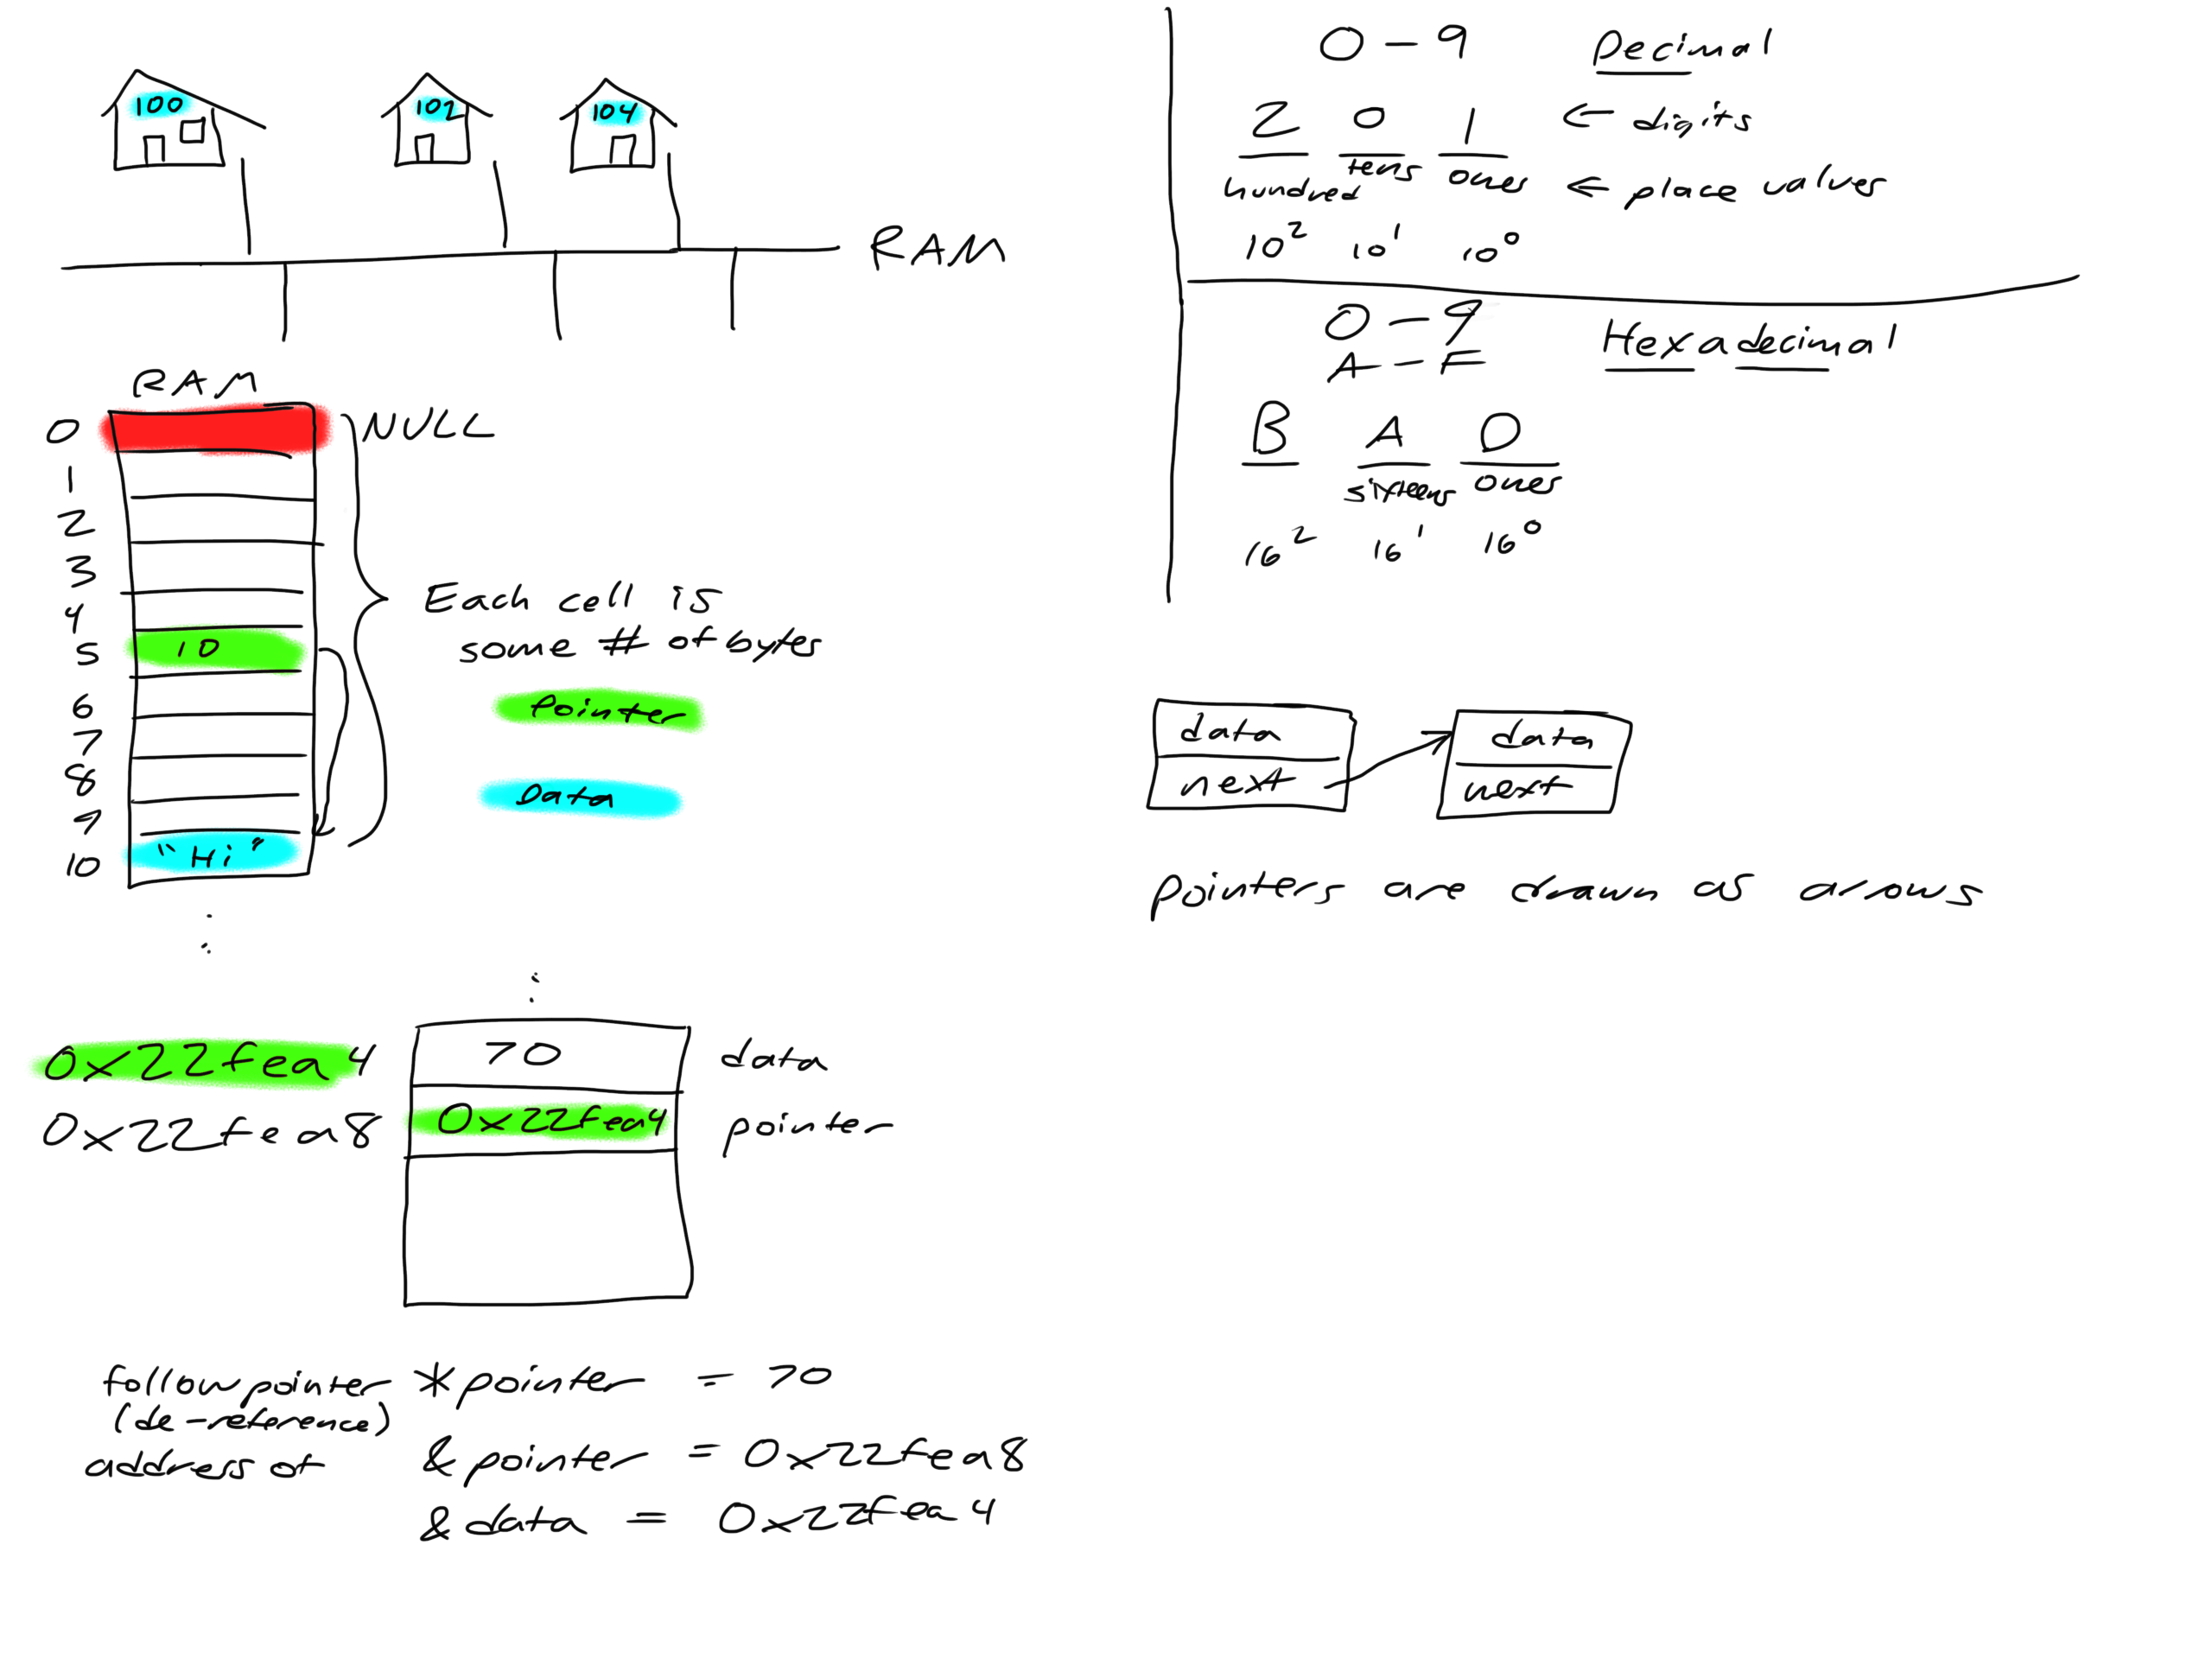 100 102 104
RAM
RAM
0 NULL
1
2
3
4
5 10
6
7
8
9
10 "Hi"
Each cell is
some # of bytes
Pointer
Data
0x22fea4 70 data
0x22fea8 0x22fea4 pointer
follow pointer *pointer = 70
(de-reference)
address of &pointer = 0x22fea8
&data = 0x22fea4
0-9 Decimal
2 0 1 ← digits
hundred tens ones ← place values
10² 10¹ 10⁰
0-9 Hexadecimal
A-F
B A D
sixteens ones
16² 16¹ 16⁰
data data
next next
pointers are drawn as arrows